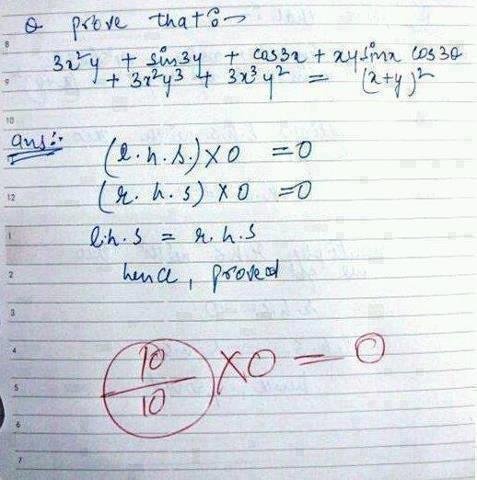 Q prove that :-
3x²y + sin3y + cos3x + xysinx cos3θ
+ 3x²y³ + 3x³y² = (x+y)²
ans:-
(l.h.s.) X 0 = 0
(r.h.s) X 0 = 0
l.h.s = r.h.s
hence, proved
10/10 X 0 = 0
8
9
10
12
1
2
3
4
5
6
7